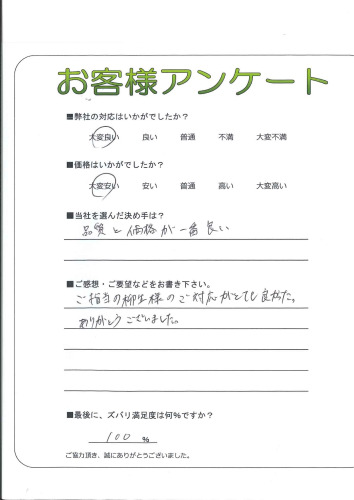 お客様アンケート
■弊社の対応はいかがでしたか？
大変良い 良い 普通 不満 大変不満
■価格はいかがでしたか？
大変安い 安い 普通 高い 大変高い
■当社を選んだ決め手は？
品質と価格が一番良い
■ご感想・ご要望などをお書き下さい。
ご担当の柳生様のご対応がとても良かった。
ありがとうございました。
■最後に、ズバリ満足度は何%ですか？
100 %
ご協力頂き、誠にありがとうございました。